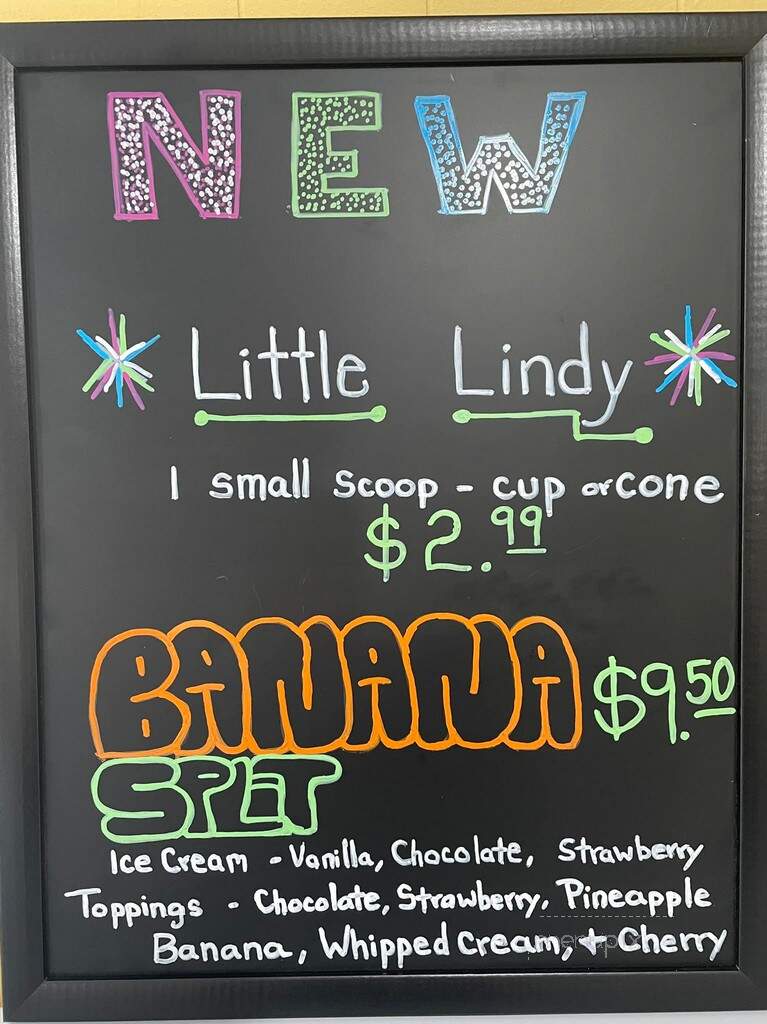 NEW
Little Lindy
1 small scoop - cup or cone
$2.99
BANANA $9.50
SPLIT
Ice Cream - Vanilla, Chocolate, Strawberry
Toppings - Chocolate, Strawberry, Pineapple
Banana, Whipped Cream, + Cherry